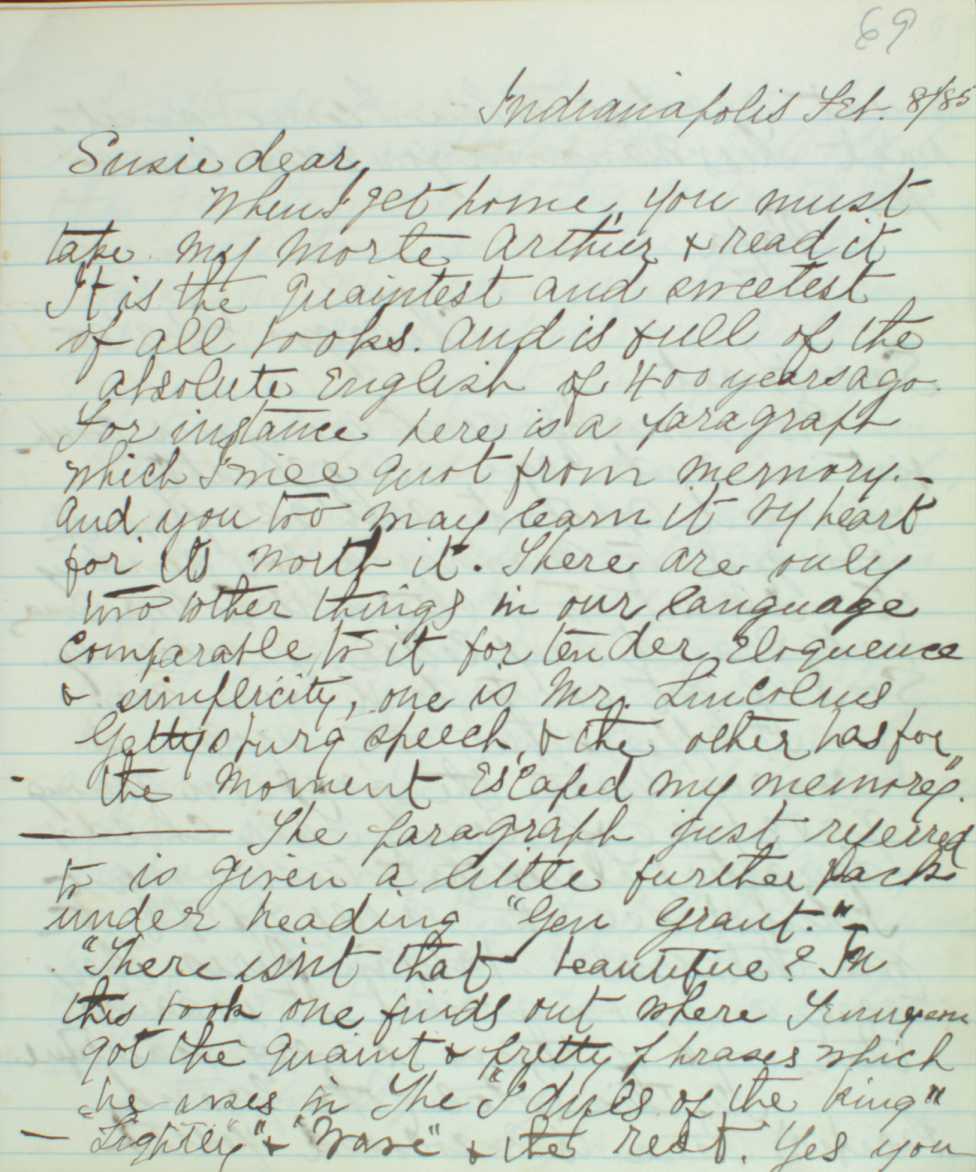 69
Indianapolis Feb. 8/85
Susie dear,
When I get home, you must
take my Morte Arthur & read it
It is the quaintest and sweetest
of all books. And is full of the
absolute English of 400 years ago.
For instance here is a paragraph
which I will quot from memory.—
And you too may learn it by heart
for its worth it. There are only
two other things in our language
comparable to it for tender eloquence
& simplicity, one is Mr. Lincolns
Gettysburg speech, & the other has for
the moment escaped my memory".
——— The paragraph just referred
to is given a little further back
under heading "Gen Grant."—
"There isn't that beautiful? In
this book one finds out where Tennyson
got the quaint & pretty phrases which
he uses in The "Idyles of the King"
— "Lightly" & "Ware" & the rest. Yes you